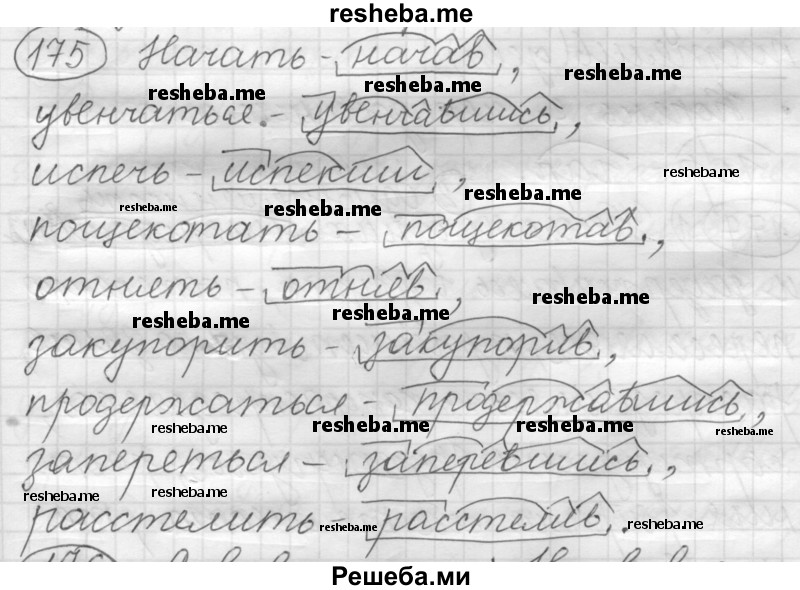 resheba.me
175 Начать - начав,
resheba.me resheba.me resheba.me
увенчаться - увенчавшись,
испечь - испекши,
resheba.me
resheba.me resheba.me resheba.me
пощекотать - пощекотав,
отнять - отняв,
resheba.me resheba.me resheba.me
закупорить - закупорив,
продержаться - продержавшись,
resheba.me resheba.me resheba.me resheba.me
запереться - заперевшись,
resheba.me resheba.me
расстелить - расстелив.
resheba.me resheba.me
Решеба.ми